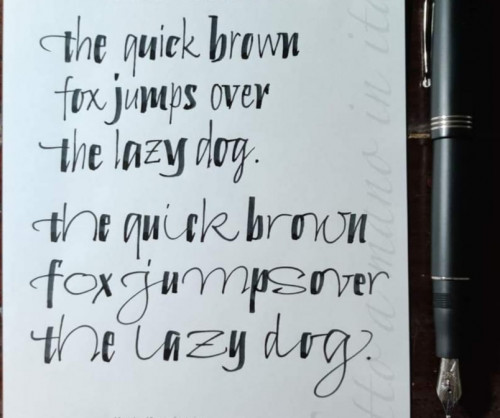 the quick brown
fox jumps over
the lazy dog.
the quick brown
fox jumps over
the lazy dog.
to a mano in ita